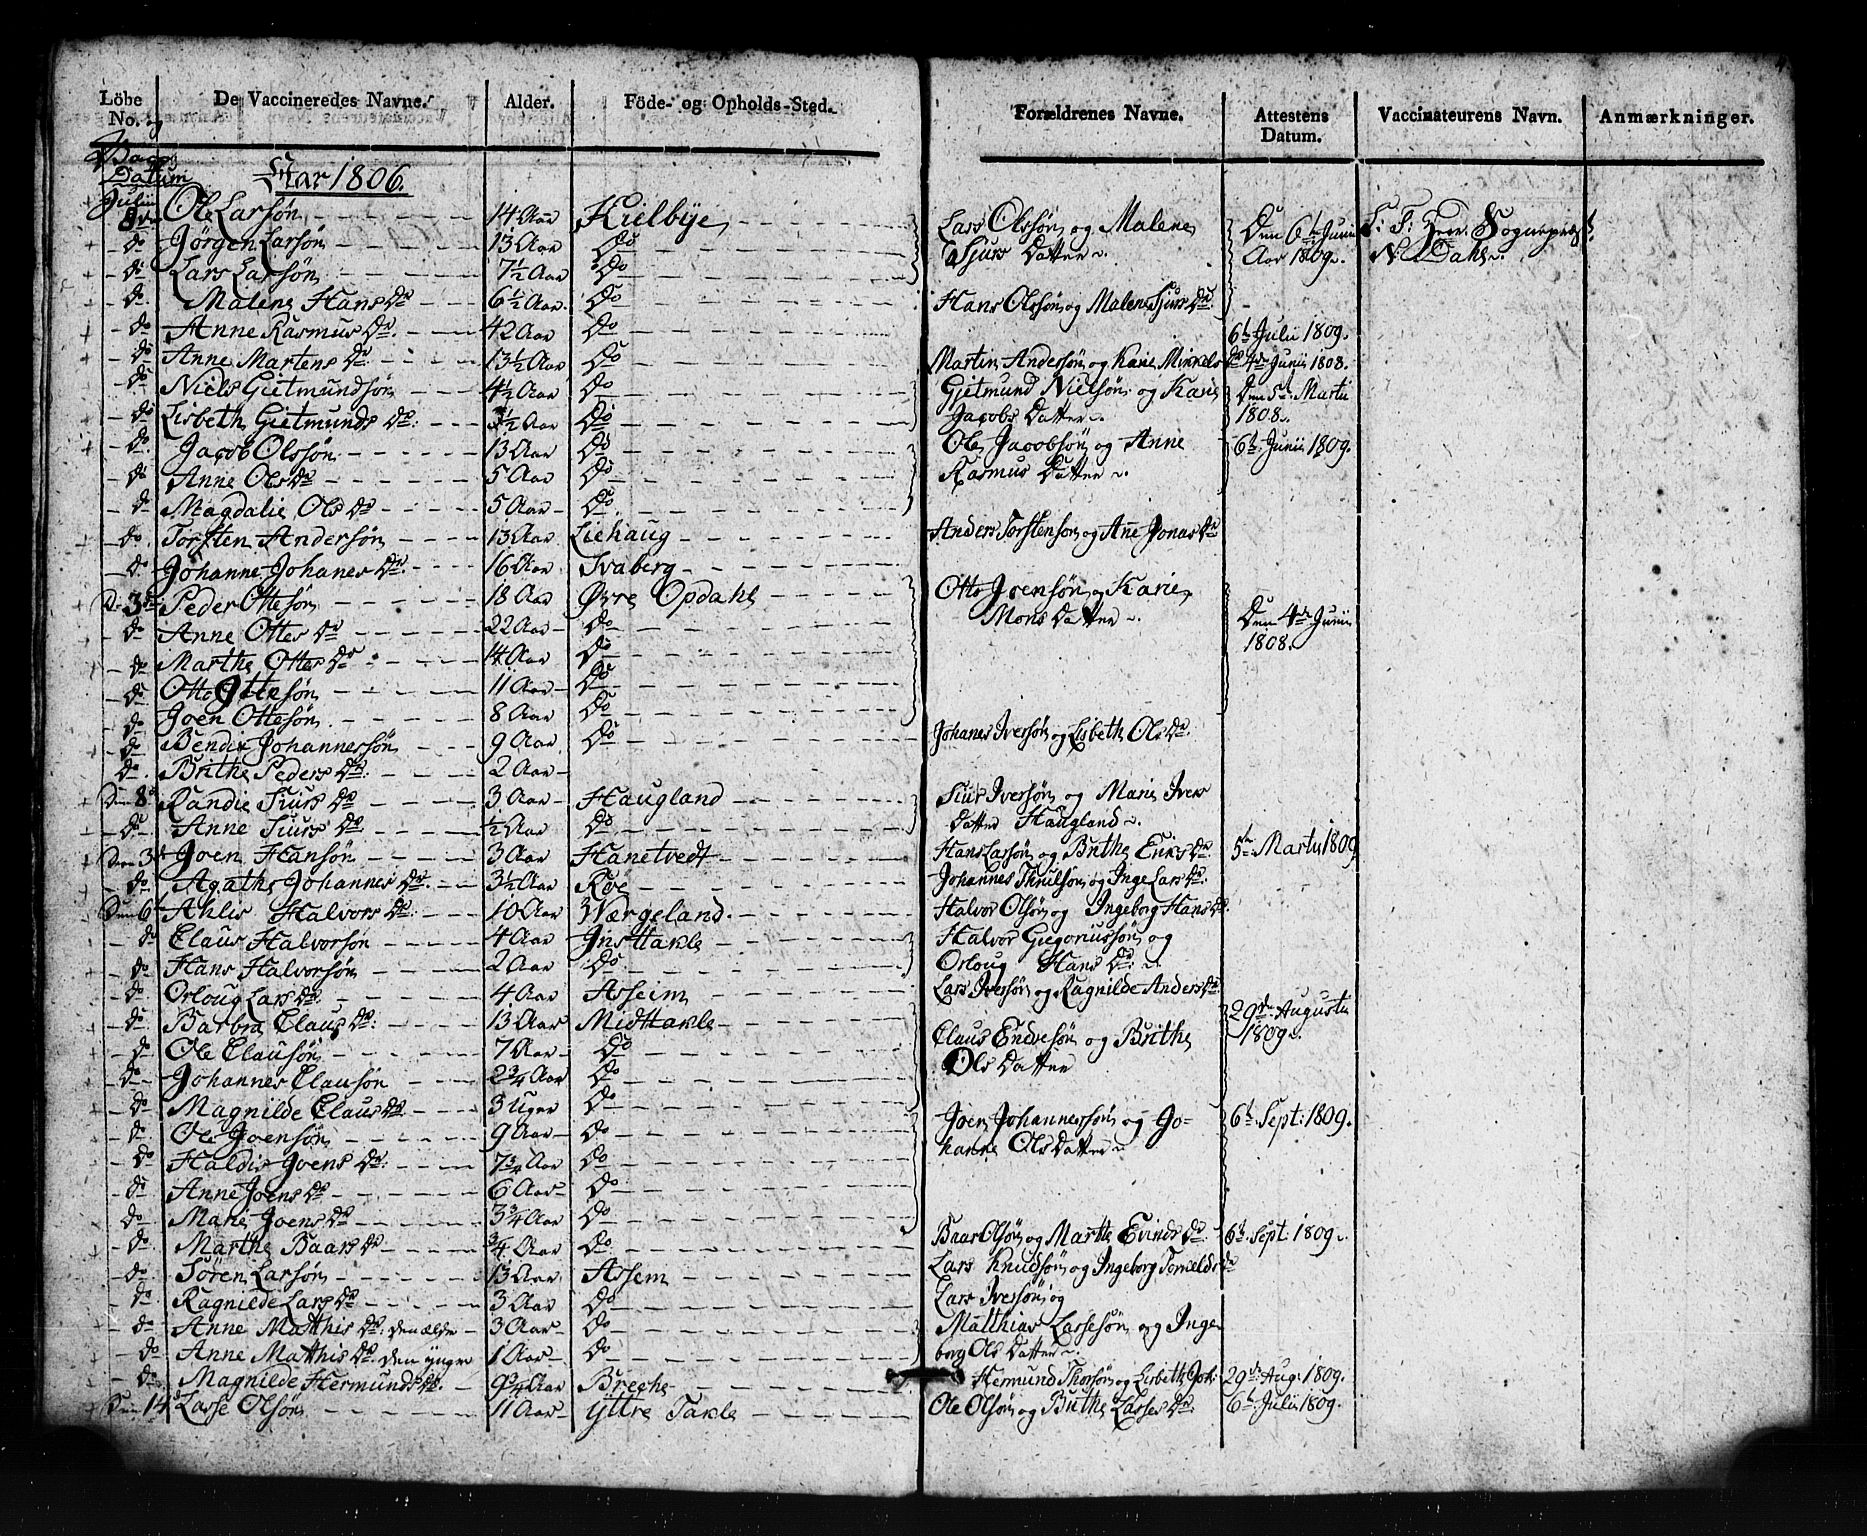 Löbe No. De Vaccineredes Navne. Alder. Föde- og Opholds-Sted. Forældrenes Navne. Attestens Datum. Vaccinateurens Navn. Anmærkninger.
og Vacc Datum Aar 1806.
Julii 8de Ole Larsøn 14 Aar Kielbÿe Lars Olssøn og Malene Den 6te Junii S: T: Herr Sogneprest
do Jørgen Larsøn 13 Aar Do Sjurs Datter Aar 1809. N. Dahl
do Lars Larsøn 7½ Aar Do
do Malene Hans Dr 6½ Aar Do Hans Olssøn og Malene Siurs Dr
do Anne Rasmus Dr. 42 Aar Do 6te Julii 1809.
do Anne Martens Dr 13½ Aar Do Martin Andersøn og Karie Minkels Dr 4de Junii 1808.
do Niels Gietmundsøn 4½ Aar Do Gjetmund Nielsøn og Karie Den 5te Martii
do Lisbeth Gietmunds Dr: ½ Aar Do Jacobs Datter 1808.
do Jacob Olssøn 13 Aar Do Ole Jacobsøn og Anne 6te Junii 1809.
do Anne Ols Dr 5 Aar Do Rasmus Datter
do Magdalie Ols Dr 5 Aar Do
do Torsten Andersøn 13 Aar Liehaug Anders Torstensøn og Ane Jonas Dr
do Johanne Johanes Dr 16 Aar Svaberg
Den 3die Peder Ottesøn 18 Aar Øvre Opdahl Otto Joensøn og Karie
do Anne Ottes Dr 22 Aar Do Mons Datter Den 4de Junii
do Marthe Ottes Dr 14 Aar Do 1808.
do Otto Ottesøn 11 Aar Do
do Joen Ottesøn 8 Aar Do
do Bendix Johannessøn 9 Aar Do Johanes Iversøn og Lisbeth Ols Dr
do Brithe Peders Dr: 2 Aar
Den 8de Randie Siurs Dr 3 Aar Haugland Siur Iversøn og Marie Ivers
do Anne Siurs Dr ½ Aar Do Datter Haugland
Den 3die Joen Hansøn 3 Aar Hanetvedt Hans Larsøn og Brithe Eriks Dr 5te Martii 1809
do Agathe Johannes Dr. 3½ Aar Røe Johannes Thrulsøn og Inge Lars Dr
Den 6te Ahlis Halvors Dr: 10 Aar Værgeland Halvor Olsøn og Ingeborg Hans Dr.
do Claus Halvorsøn 4 Aar Insttakle Halvor Gregoriussøn og
do Hans Halvorsøn 2 Aar Do Orloug Hans Dr
do Orloug Lars Dr 4 Aar Asseim Lars Iversøn og Ragnilde Anders Dr
do Barbra Claus Dr: 13 Aar Midttakle 29de Augusti
do Ole Clausøn 7 Aar Do Claus Endresøn og Brithe 1809.
do Johannes Clausøn 2¾ Aar Do Ols Datter
do Magnilde Claus Dr 3 Uger Do
do Ole Joensøn 9 Aar Do Joen Johannessøn og Jo- 6te Sept: 1809.
do Haldis Joens Dr: 7¾ Aar Do hanne Ols Datter
do Anne Joens Dr 6 Aar Do
do Marie Joens Dr 3¾ Aar Do
do Marthe Baars Dr ¾ Aar Do Baar Olsøn og Marthe Evinds Dr 6te Sept: 1809.
do Søren Larsøn 13 Aar Assem Lars Knudsøn og Ingeborg Dr
do Ragnilde Lars Dr 3 Aar Do Lars Iversøn og
do Anne Matthis Dr: den ældre 3 Aar Do Matthias Larsesøn og Inge
do Anne Matthis Dr: den yngre 1 Aar Do borg Ols Datter
do Magnilde Hermunds Dr. 9¾ Aar Breche Hermund Thorsøn og Lisbeth Joh: 29de Aug: 1809.
Den 14de Lasse Olsøn 11 Aar Yttre Takle Ole Olsøn og Brithe Lasses Dr 6te Julii 1809.